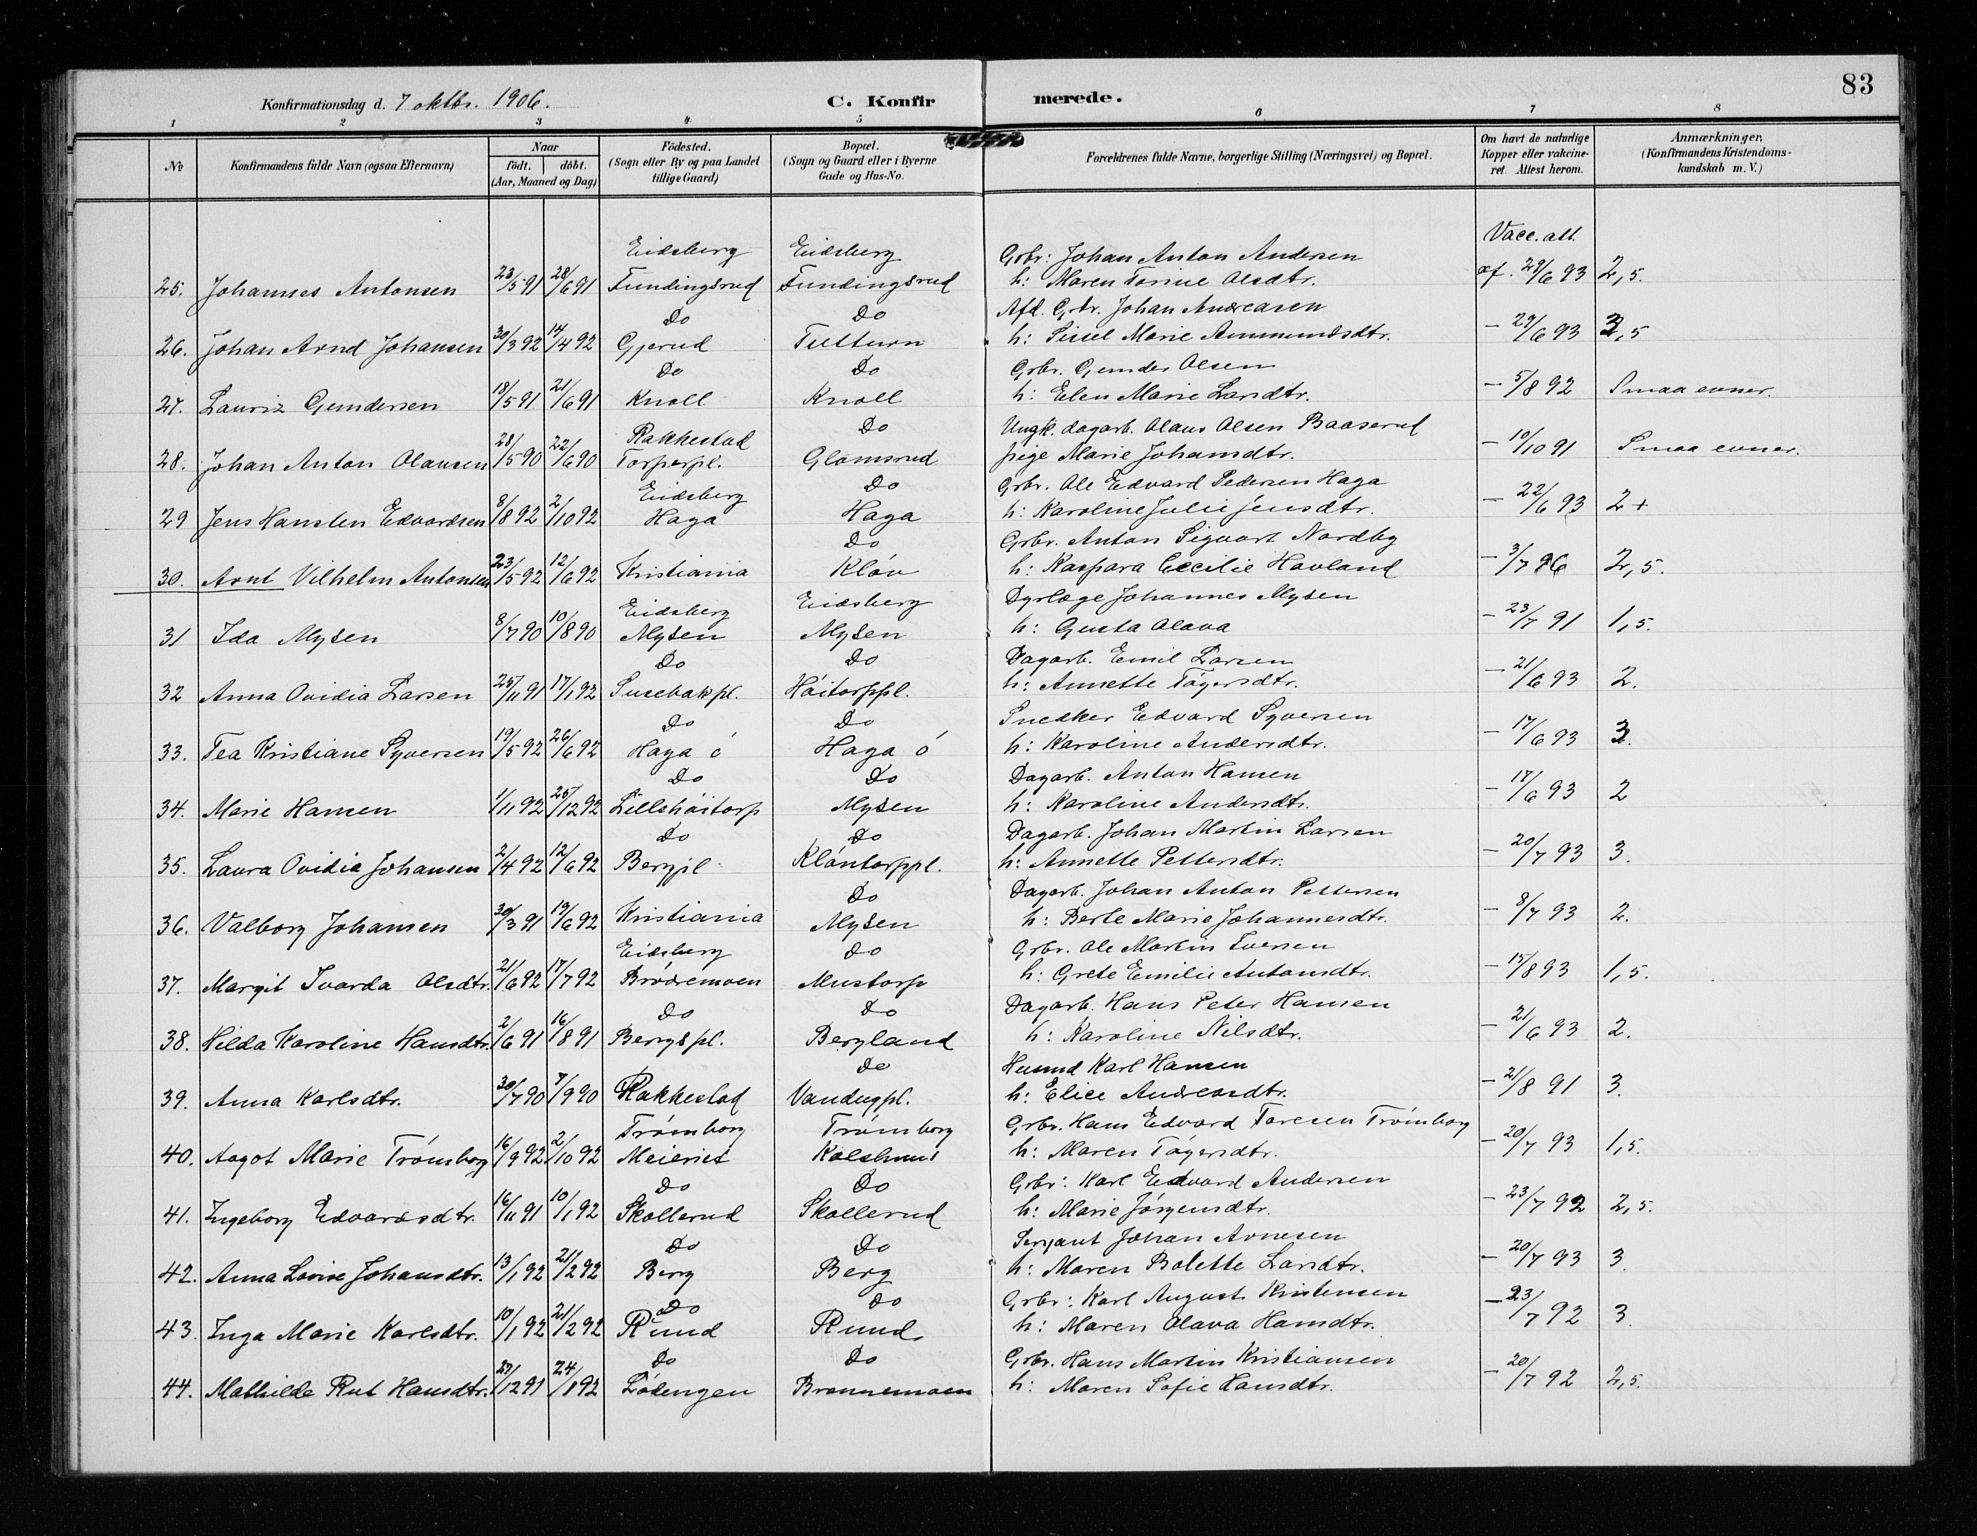 83
Konfirmationsdag d. 7 oktbr. 1906. C. Konfirmerede.
1 2 3 4 5 6 7 8
No
Konfirmandens fulde Navn (ogsaa Efternavn)
Naar
Födt. döbt.
(Aar, Maaned og Dag)
Födested.
(Sogn eller By og paa Landet
tillige Gaard)
Bopæl.
(Sogn og Gaard eller i Byerne
Gade og Hus-No.
Forældrenes fulde Navne, borgerlige Stilling (Næringsvei) og Bopæl.
Om havt de naturlige
Kopper eller vakcine-
ret. Attest herom.
Anmærkninger,
(Konfirmandens Kristendoms-
kundskab m. V.)
Vacc. att.
Eidsberg Eidsberg Grbr: Johan Anton Andersen
25. Johannes Antonsen 23/5 91 28/6 91 Fundingsrud Fundingsrud h: Maren Torine Olsdtr. af. 29/6 93 2,5.
Do Do Afd. Grbr. Johan Andreasen
26. Johan Arnd Johansen 30/3 92 14/4 92 Gjerud Tutturn h: Sissel Marie Ammundsdtr. — 29/6 93 3,5
Do Do Grbr. Gunder Olsen
27. Lauriz Gundersen 18/5 91 21/6 91 Knoll Knoll h: Elen Marie Larsdtr. — 5/8 92 Smaa evner.
Rakkestad Do Ungk. dagarb. Olaus Olsen Baaserud
28. Johan Anton Olausen 28/5 90 22/6 90 Torperpl. Glomsrud pige Marie Johansdtr. — 10/10 91 Smaa evner.
Eidsberg Do Grbr. Ole Edvard Pedersen Haga
29 Jens Hansten Edvardsen 8/8 92 2/10 92 Haga Haga h: Karoline Julie Jensdtr. — 22/6 93 2+
Do Grbr. Anton Sigvart Nordby
30. Arnt Vilhelm Antonsen 23/5 92 12/6 92 Kristiania Kløv h: Kaspara Cecilie Havland — 3/7 96 2,5.
Eidsberg Eidsberg Dyrlæge Johannes Mysen
31 Ida Mysen 8/7 90 10/8 90 Mysen Mysen h: Gusta Olava — 23/7 91 1,5.
Do Do Dagarb. Emil Larsen
32 Anna Ovidia Larsen 25/11 91 17/1 92 Susebakpl. Høitorppl. h: Annette Tøgersdtr. — 21/6 93 2.
Do Do Snedker Edvard Syversen
33. Tea Kristiane Syversen 19/5 92 26/6 92 Haga ö Haga ö h: Karoline Andersdtr. — 17/6 93 3.
Do Do Dagarb. Anton Hansen
34. Marie Hansen 1/11 92 25/12 92 Lillehöitorp Mysen h: Karoline Andersdtr. — 17/6 93 2
Do Do Dagarb. Johan Martin Larsen
35. Laura Ovidia Johansen 2/4 92 12/6 92 Bergpl. Kløntorppl. h: Annette Pettersdtr. — 20/7 93 3.
Do Dagarb. Johan Anton Pettersen
36. Valborg Johansen 30/3 91 19/6 92 Kristiania Mysen h: Berte Marie Johannesdtr. — 8/7 93 2.
Eidsberg Do Grbr. Ole Martin Iversen
37. Margit Ivarda Olsdtr. 21/6 92 17/7 92 Brødremoen Mustorp h: Grete Emilie Antonsdtr. — 15/8 93 1,5.
Do Do Dagarb. Hans Peter Hansen
38. Hilda Karoline Hansdtr. 2/6 91 16/8 91 Bergspl. Bergland h: Karoline Nilsdtr. — 21/6 93 2.
Do Husmd Karl Hansen
39. Anna Karlsdtr. 30/7 90 7/9 90 Rakkestad Vandugpl. h: Elise Andreasdtr. — 21/8 91 3.
Trømborg Trømborg Grbr. Hans Edvard Toresen Trømborg
40. Aagot Marie Trømborg 16/9 92 2/10 92 Meieriet Kolshuus h: Maren Tøgersdtr. — 20/7 93 1,5.
Do Do Grbr: Karl Edvard Andersen
41. Ingeborg Edvardsdtr. 16/11 91 10/1 92 Skollerud Skollerud h: Marie Jørgensdtr. — 23/7 92 2,5.
Do Do Serjant Johan Arnesen
42. Anna Lovise Johansdtr. 13/1 92 21/2 92 Berg Berg h: Maren Bolette Larsdtr. — 20/7 93 3.
Do Do Grbr: Karl August Kristensen
43. Inga Marie Karlsdtr. 10/1 92 21/2 92 Rund Rund h: Maren Olava Hansdtr. — 23/7 92 3.
Do Do Grbr. Hans Martin Kristiansen
44. Mathilde Rut Hansdtr. 29/12 91 24/1 92 Lødengen Brønnemoen h: Maren Sofie Hansdtr. — 20/7 92 2,5.